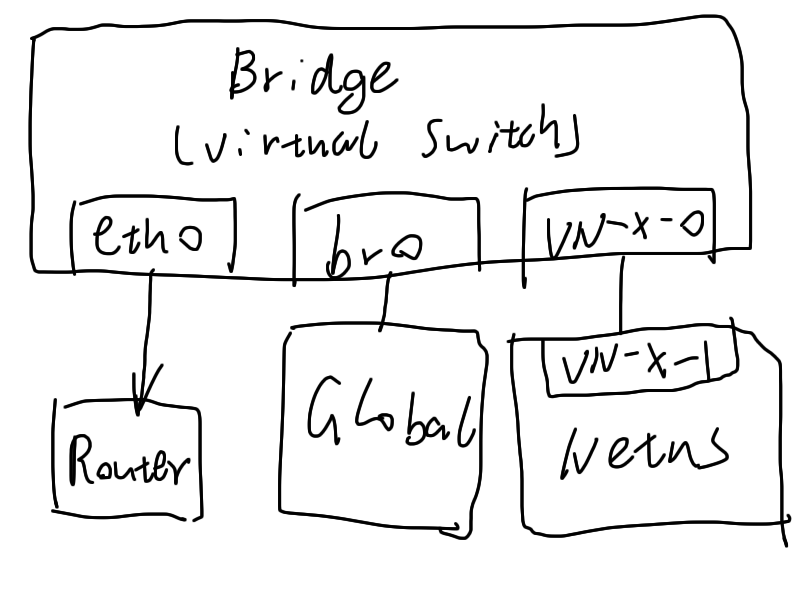 Bridge
(virtual switch)
eth0
br0
VN-x-0
VN-x-1
Router
Global
Netns